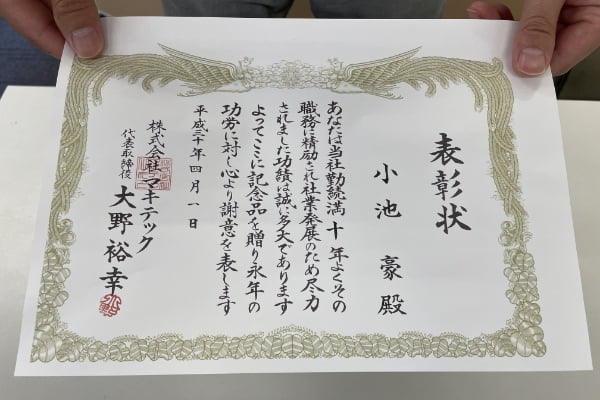 表彰状
小池 豪 殿
あなたは当社勤続満十年よくその
職務に精励され社業発展のため尽力
されました功績は誠に多大であります
よってここに記念品を贈り永年の
功労に対し心より謝意を表します
平成三十年四月一日
株式会社マキテック
代表取締役 大野裕幸